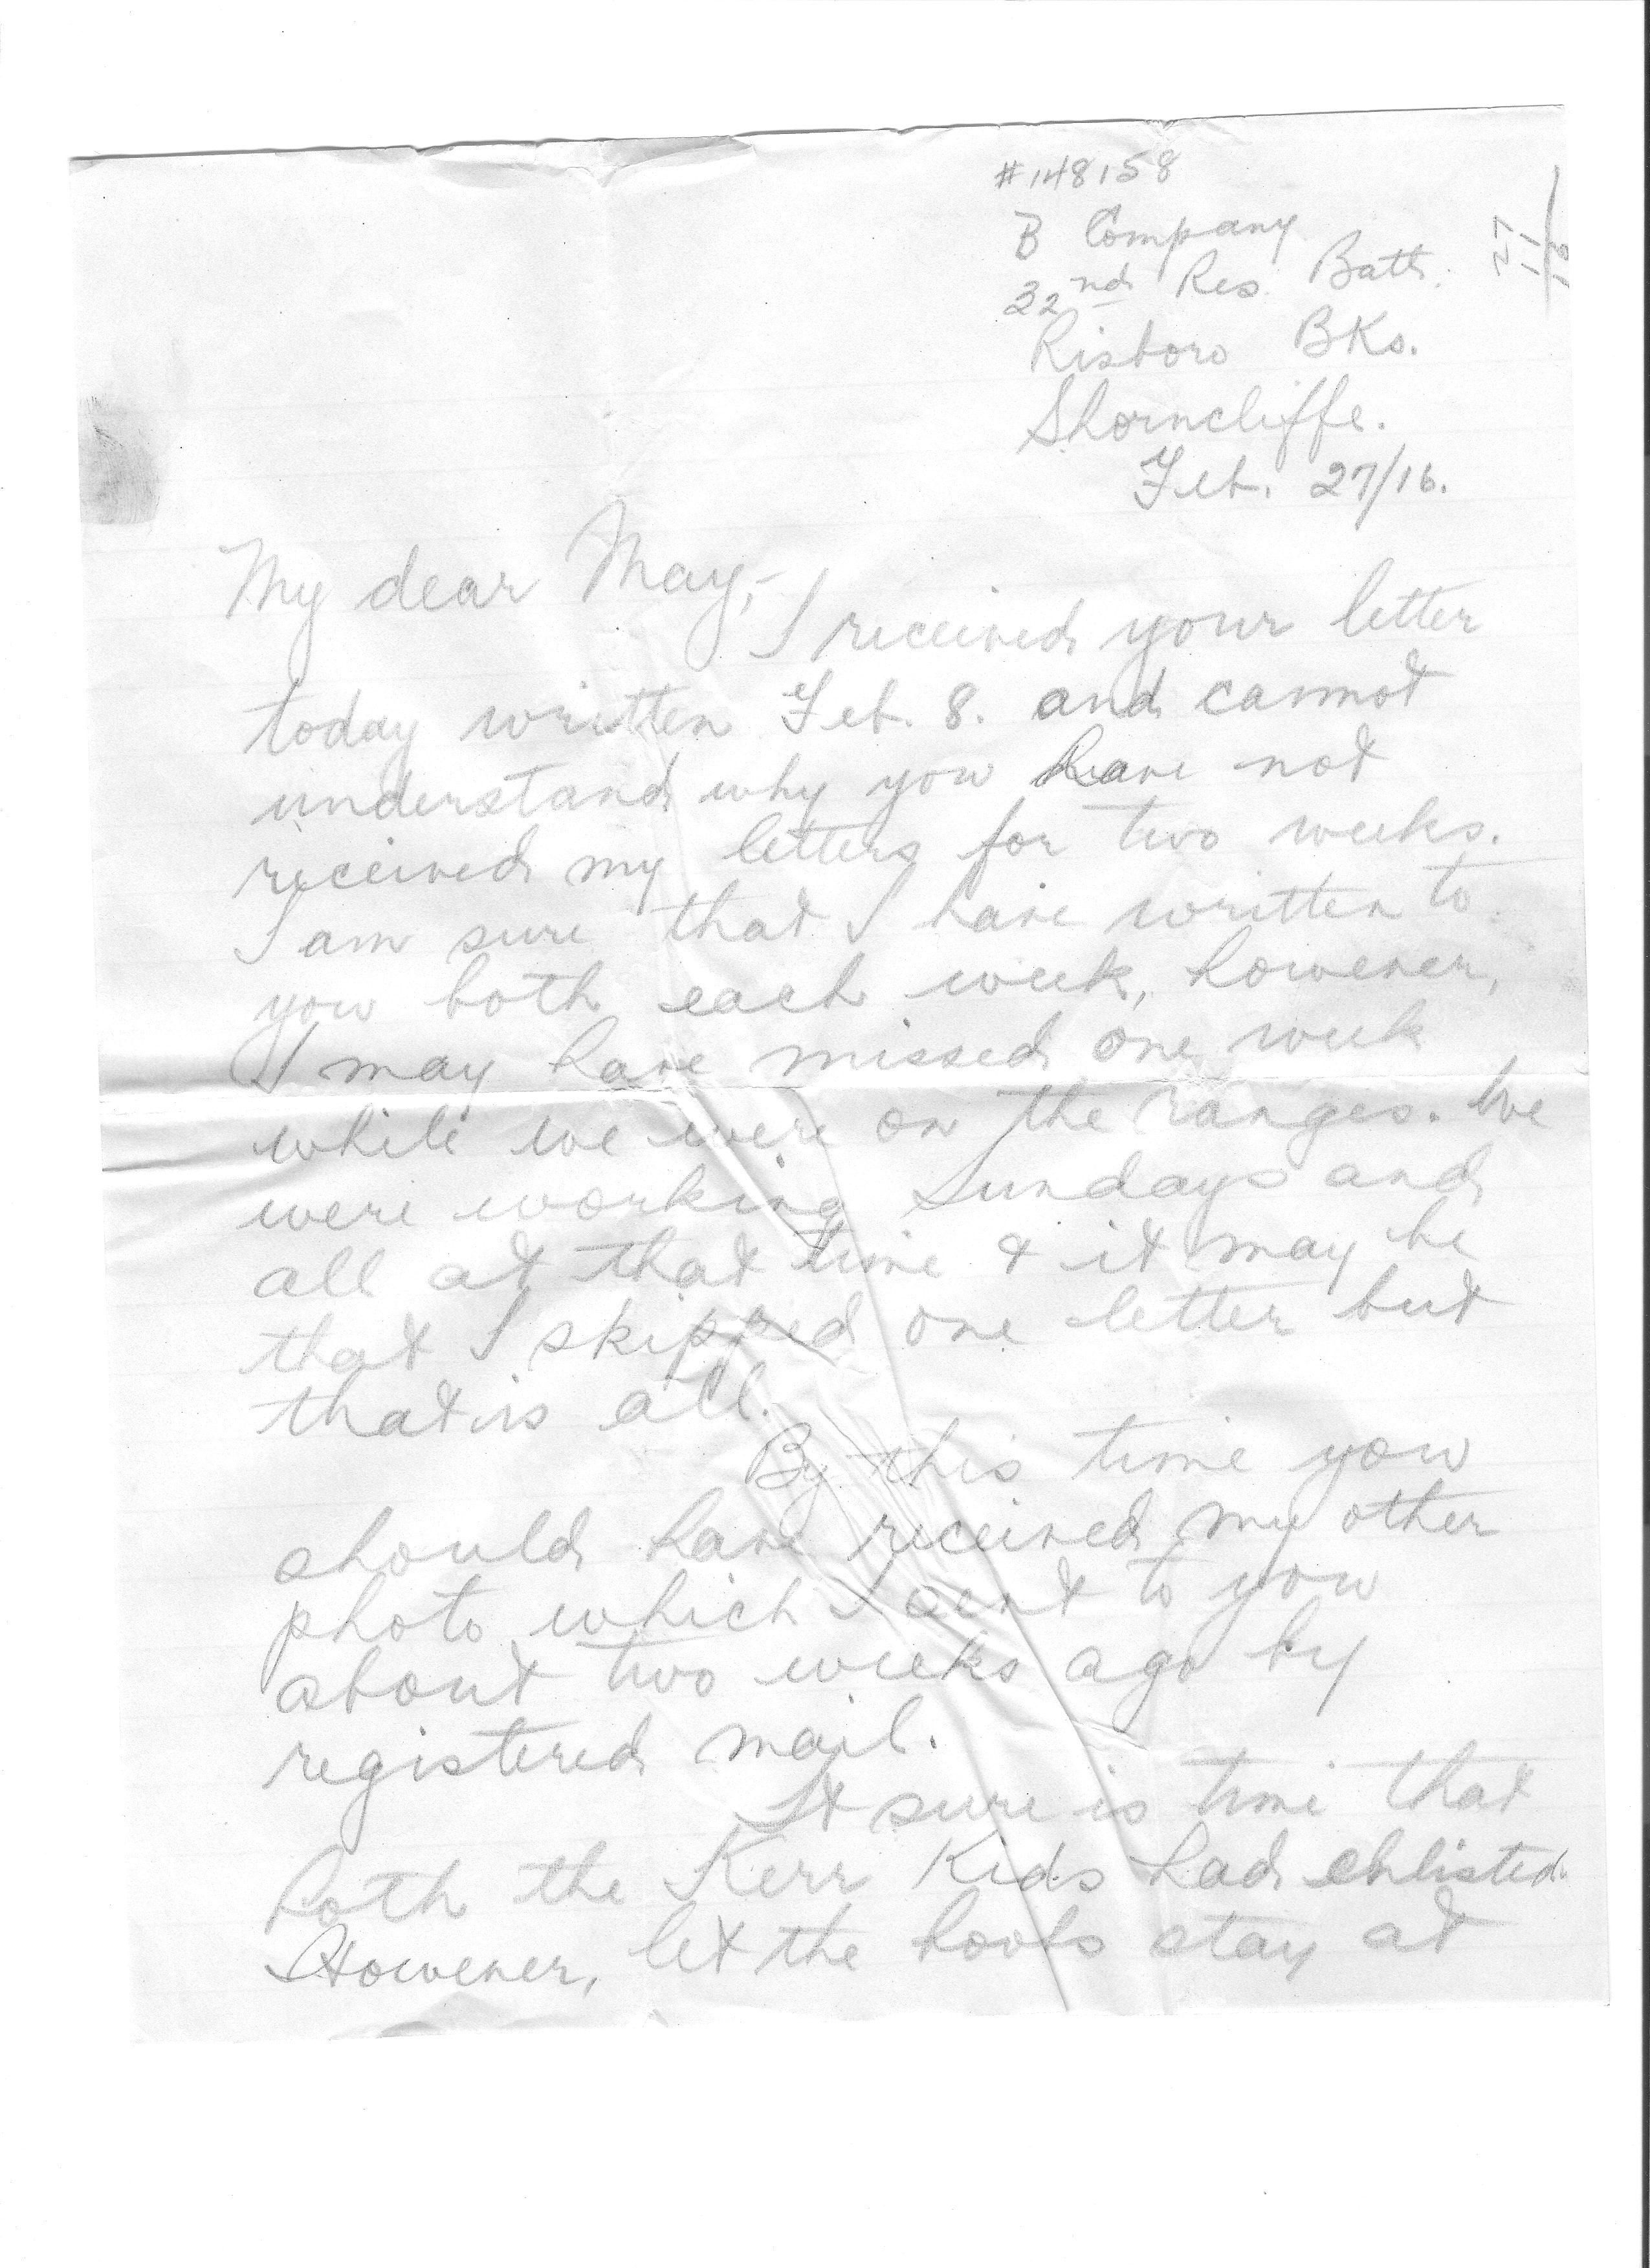 #148158
B Company
32nd Res. Batt.
Risboro BKs.
Shorncliffe.
Feb. 27/16.
My dear May,-
I received your letter
today written Feb. 8. and cannot
understand why you have not
received my letters for two weeks.
I am sure that I have written to
you both each week, however,
I may have missed one week
while we were on the ranges. We
were working Sundays and
all at that time & it may be
that I skipped one letter but
that is all.
By this time you
should have received my other
photo which I sent to you
about two weeks ago by
registered mail.
It sure is time that
both the Kerr Kids had enlisted.
However, let the boobs stay at